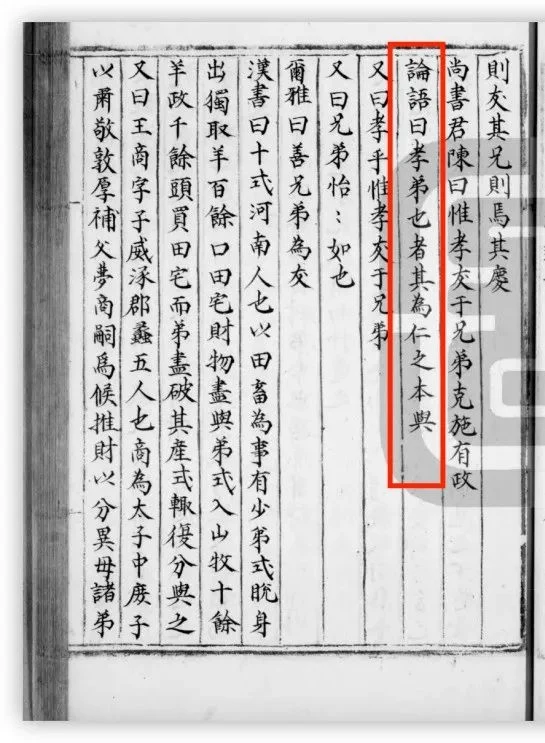 則友其兄則焉其慶
尚書君陳曰惟孝友于兄弟克施有政
論語曰孝弟也者其為仁之本與
又曰孝乎惟孝友于兄弟
又曰兄弟怡〻如也
爾雅曰善兄弟為友
漢書曰卜式河南人也以田畜為事有少弟式脫身
出獨取羊百餘口田宅財物盡與弟式入山牧十餘
羊政千餘頭買田宅而弟盡破其產式輙復分與之
又曰王商字子威涿郡蠡五人也商為太子中庶子
以肅敬敦厚補父夢商嗣為候推財以分異毋諸弟